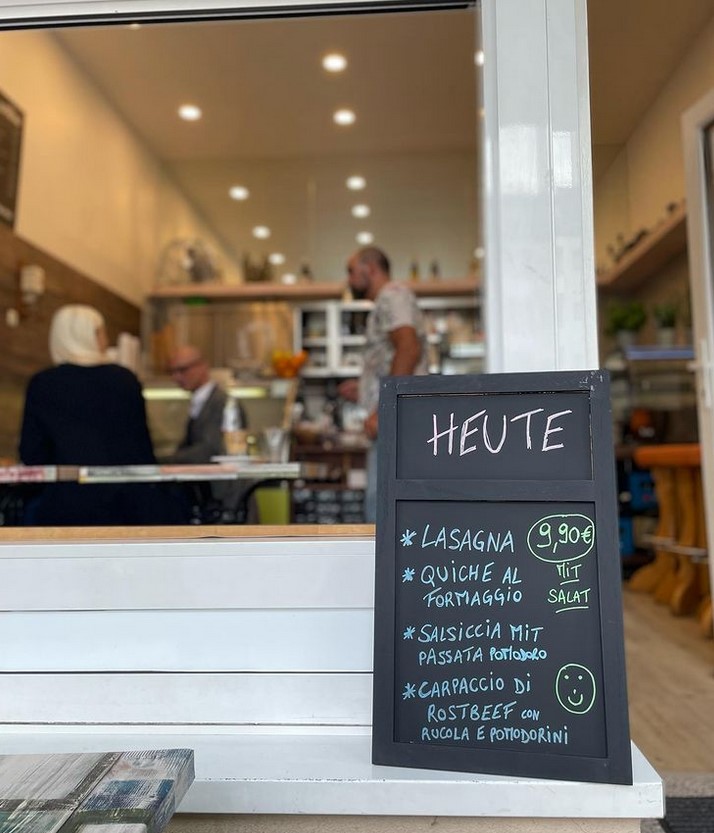 HEUTE
* LASAGNA 9,90€
* QUICHE AL MIT
FORMAGGIO SALAT
* SALSICCIA MIT
PASSATA POMODORO
* CARPACCIO DI
ROSTBEEF CON
RUCOLA E POMODORINI